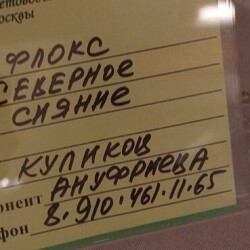 москвы
ФЛОКС
СЕВЕРНОЕ
СИЯНИЕ
КУЛИКОВ
онент АНУФРИЕВА
фон 8.910.461.11.65